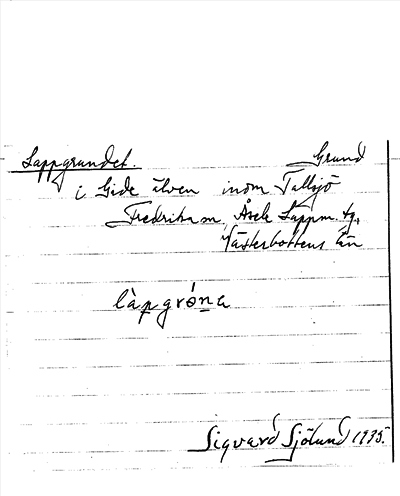 Lappgrundet. Grund
i Gide älven inom Tallsjö
Fredrika sn, Åsele Lappm. tg,
Västerbottens län
làpgróna
Sigvard Sjölund 1935.